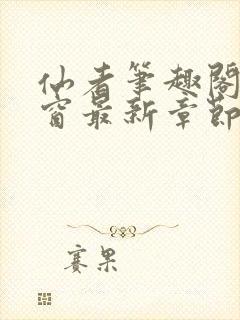 仙者筆趣閣
窗最新章節
賽果